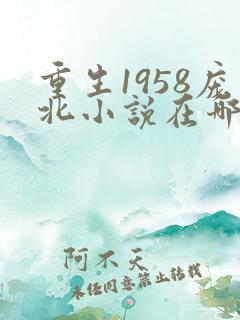 重生1958庞
北小说在哪
阿不天
未经同意禁止转载